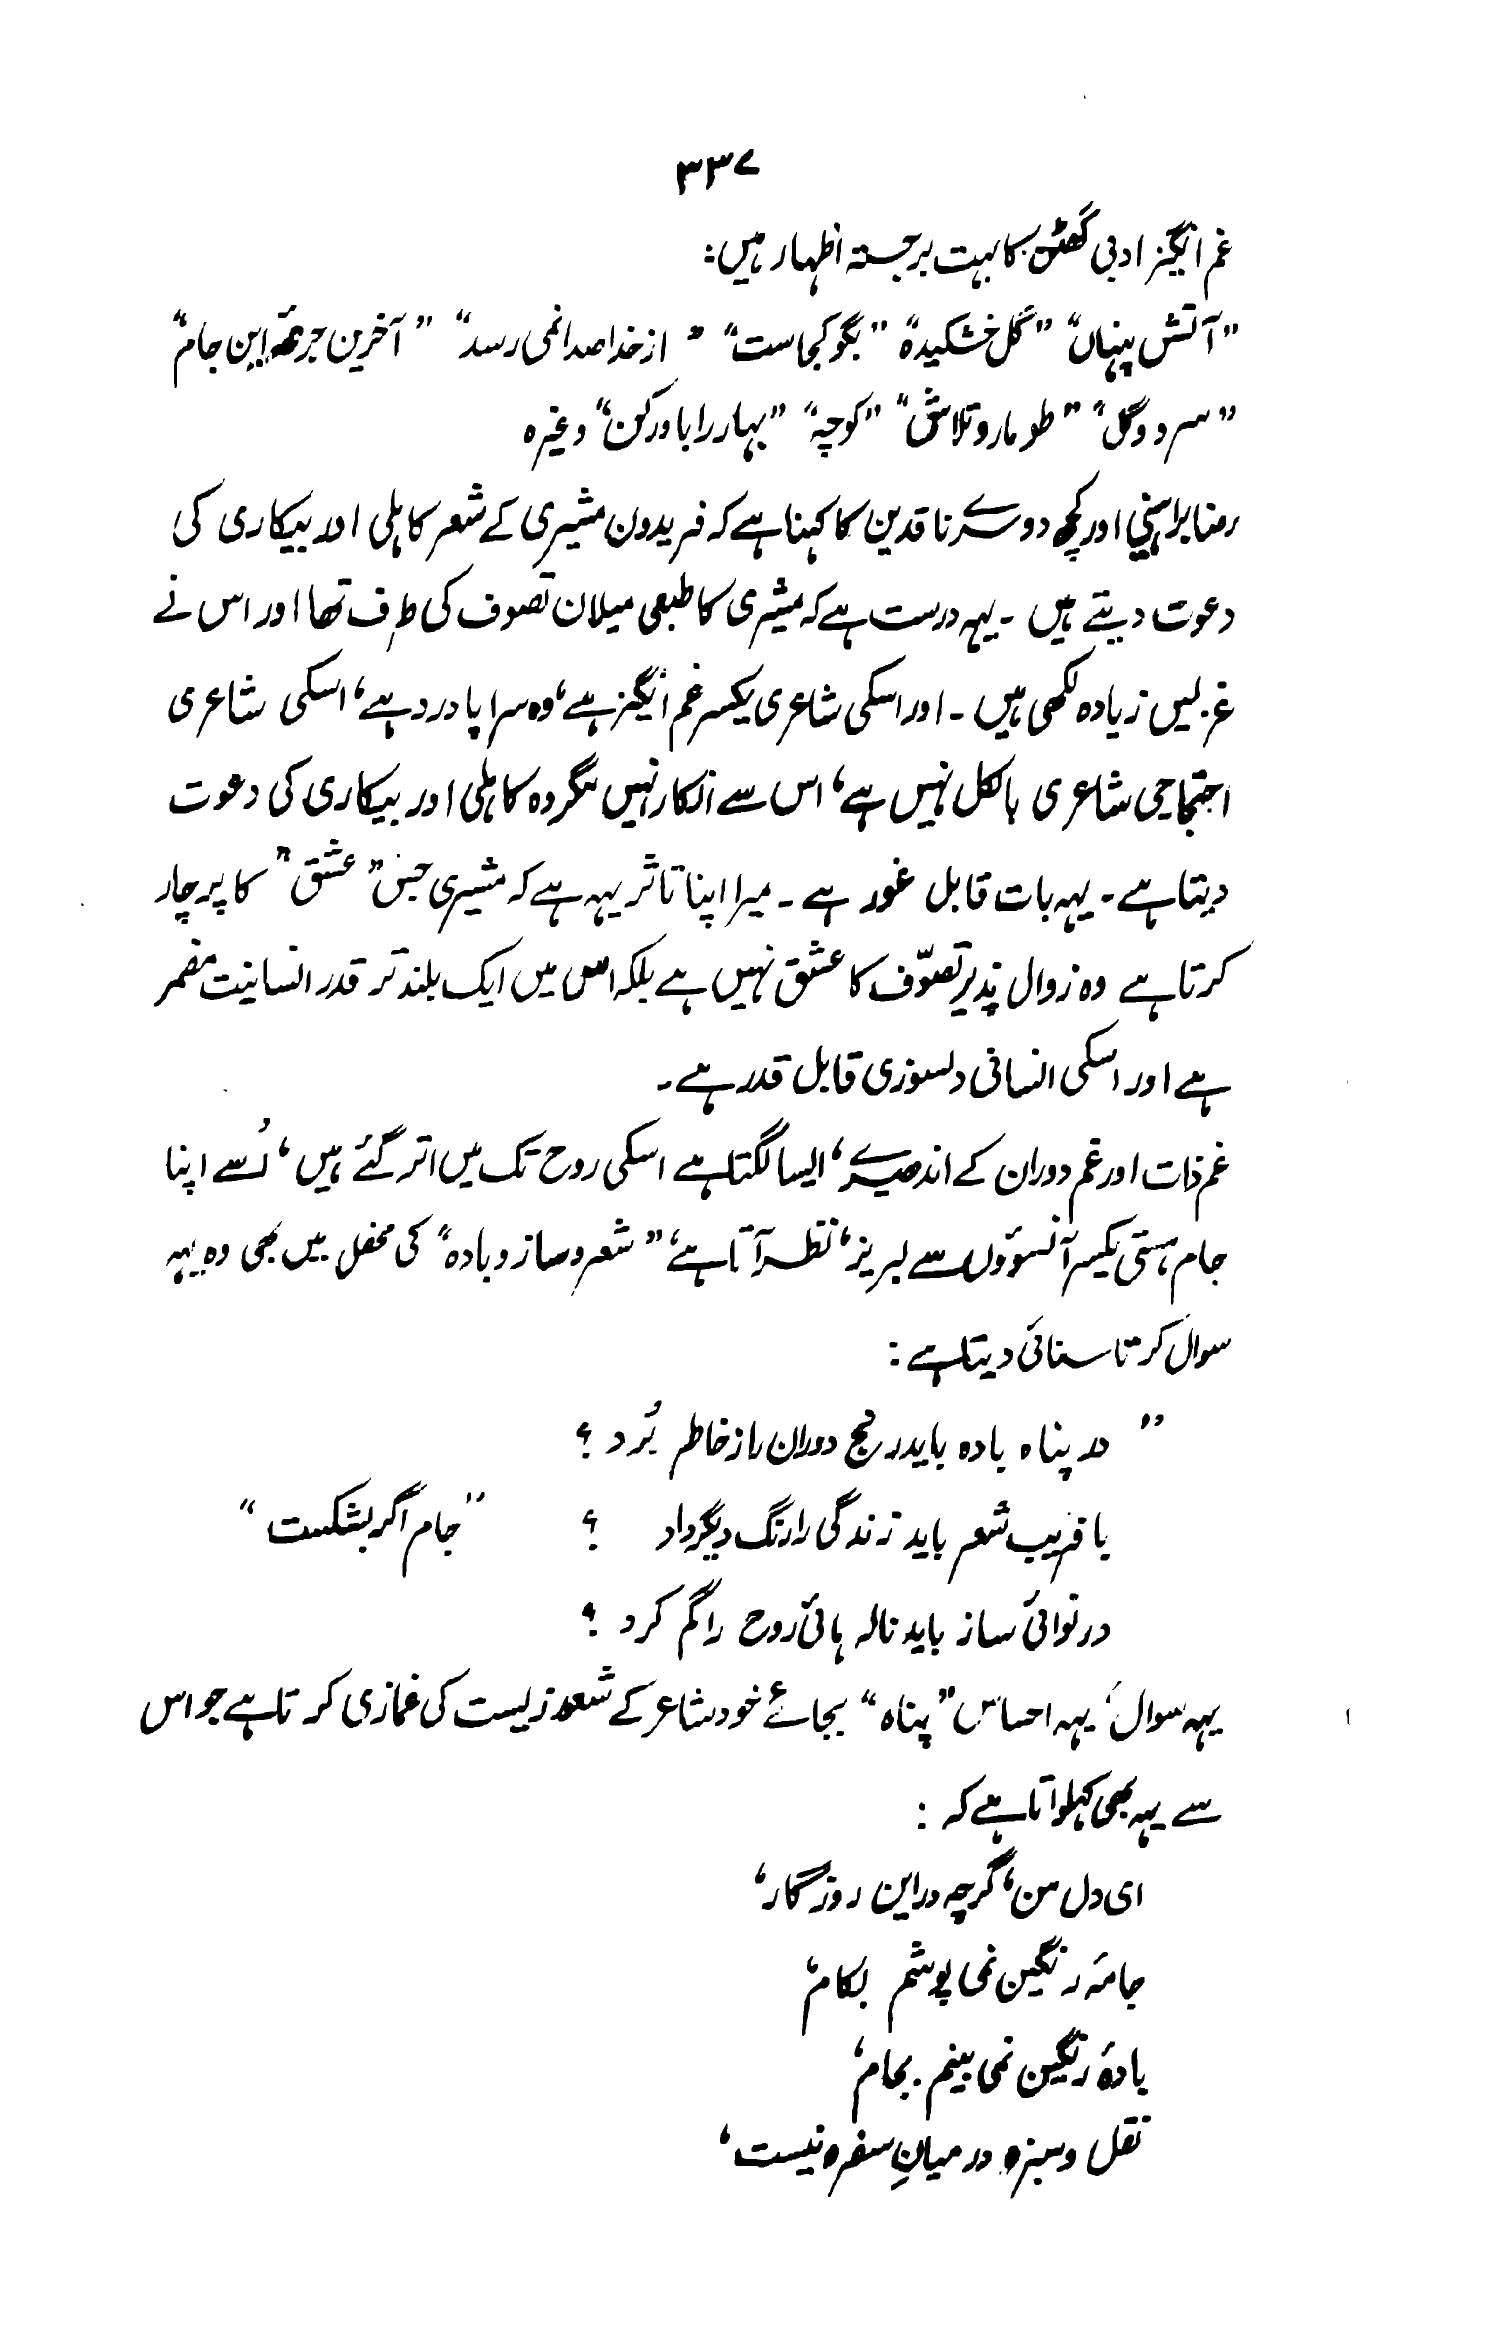 ۳۳۷
غم انگیز ادبی گھٹن کا بہت برجستہ اظہار ہیں:
"آتش پنہاں" "گل خشکیدہ" "بگو کجاست" "از خدا صدا نمی رسد" "آخرین جرعۂ این جام"
"سرو و گل" "طومار و تلاش" "کوچہ" "بہار را باور کن" وغیرہ
رضا براہنی اور کچھ دوسرے ناقدین کا کہنا ہے کہ فریدون مشیری کے شعر کاہلی اور بیکاری کی
دعوت دیتے ہیں ۔ یہہ درست ہے کہ مشیری کا طبعی میلان تصوف کی طرف تھا اور اس نے
غزلیں زیادہ لکھی ہیں ۔ اور اسکی شاعری یکسر غم انگیز ہے، وہ سراپا درد ہے، اسکی شاعری
احتجاجی شاعری بالکل نہیں ہے، اس سے انکار نہیں مگر وہ کاہلی اور بیکاری کی دعوت
دیتا ہے۔ یہہ بات قابل غور ہے ۔ میرا اپنا تاثر یہہ ہے کہ مشیری جس "عشق" کا پرچار
کرتا ہے وہ زوال پذیر تصوّف کا عشق نہیں ہے بلکہ اس میں ایک بلند تر قدر انسانیت مضمر
ہے اور اسکی انسانی دلسوزی قابل قدر ہے۔
غم ذات اور غم دوران کے اندھیرے، ایسا لگتا ہے اسکی روح تک میں اتر گئے ہیں، اُسے اپنا
جام ہستی یکسر آنسوؤں سے لبریز، نظر آتا ہے، "شعر و ساز و بادہ" کی محفل میں بھی وہ یہہ
سوال کرتا سنائی دیتا ہے :
" در پناہ بادہ باید رنج دوران را ز خاطر بُرد ؟
با فریب شعر باید زندگی را رنگ دیگر داد ؟ "جام اگر بشکست"
در نوائی ساز باید نالہ ہائی روح را گم کرد ؟
یہہ سوال، یہہ احساس "پناہ" بجائے خود شاعر کے شعور زیست کی غمازی کرتا ہے جو اس
سے یہہ بھی کہلواتا ہے کہ :
ای دل من، گرچہ در این روزگار،
جامۂ رنگین نمی پوشم بکام،
بادۂ رنگین نمی بینم بجام،
نقل و سبزہ در میانِ سفرہ نیست،